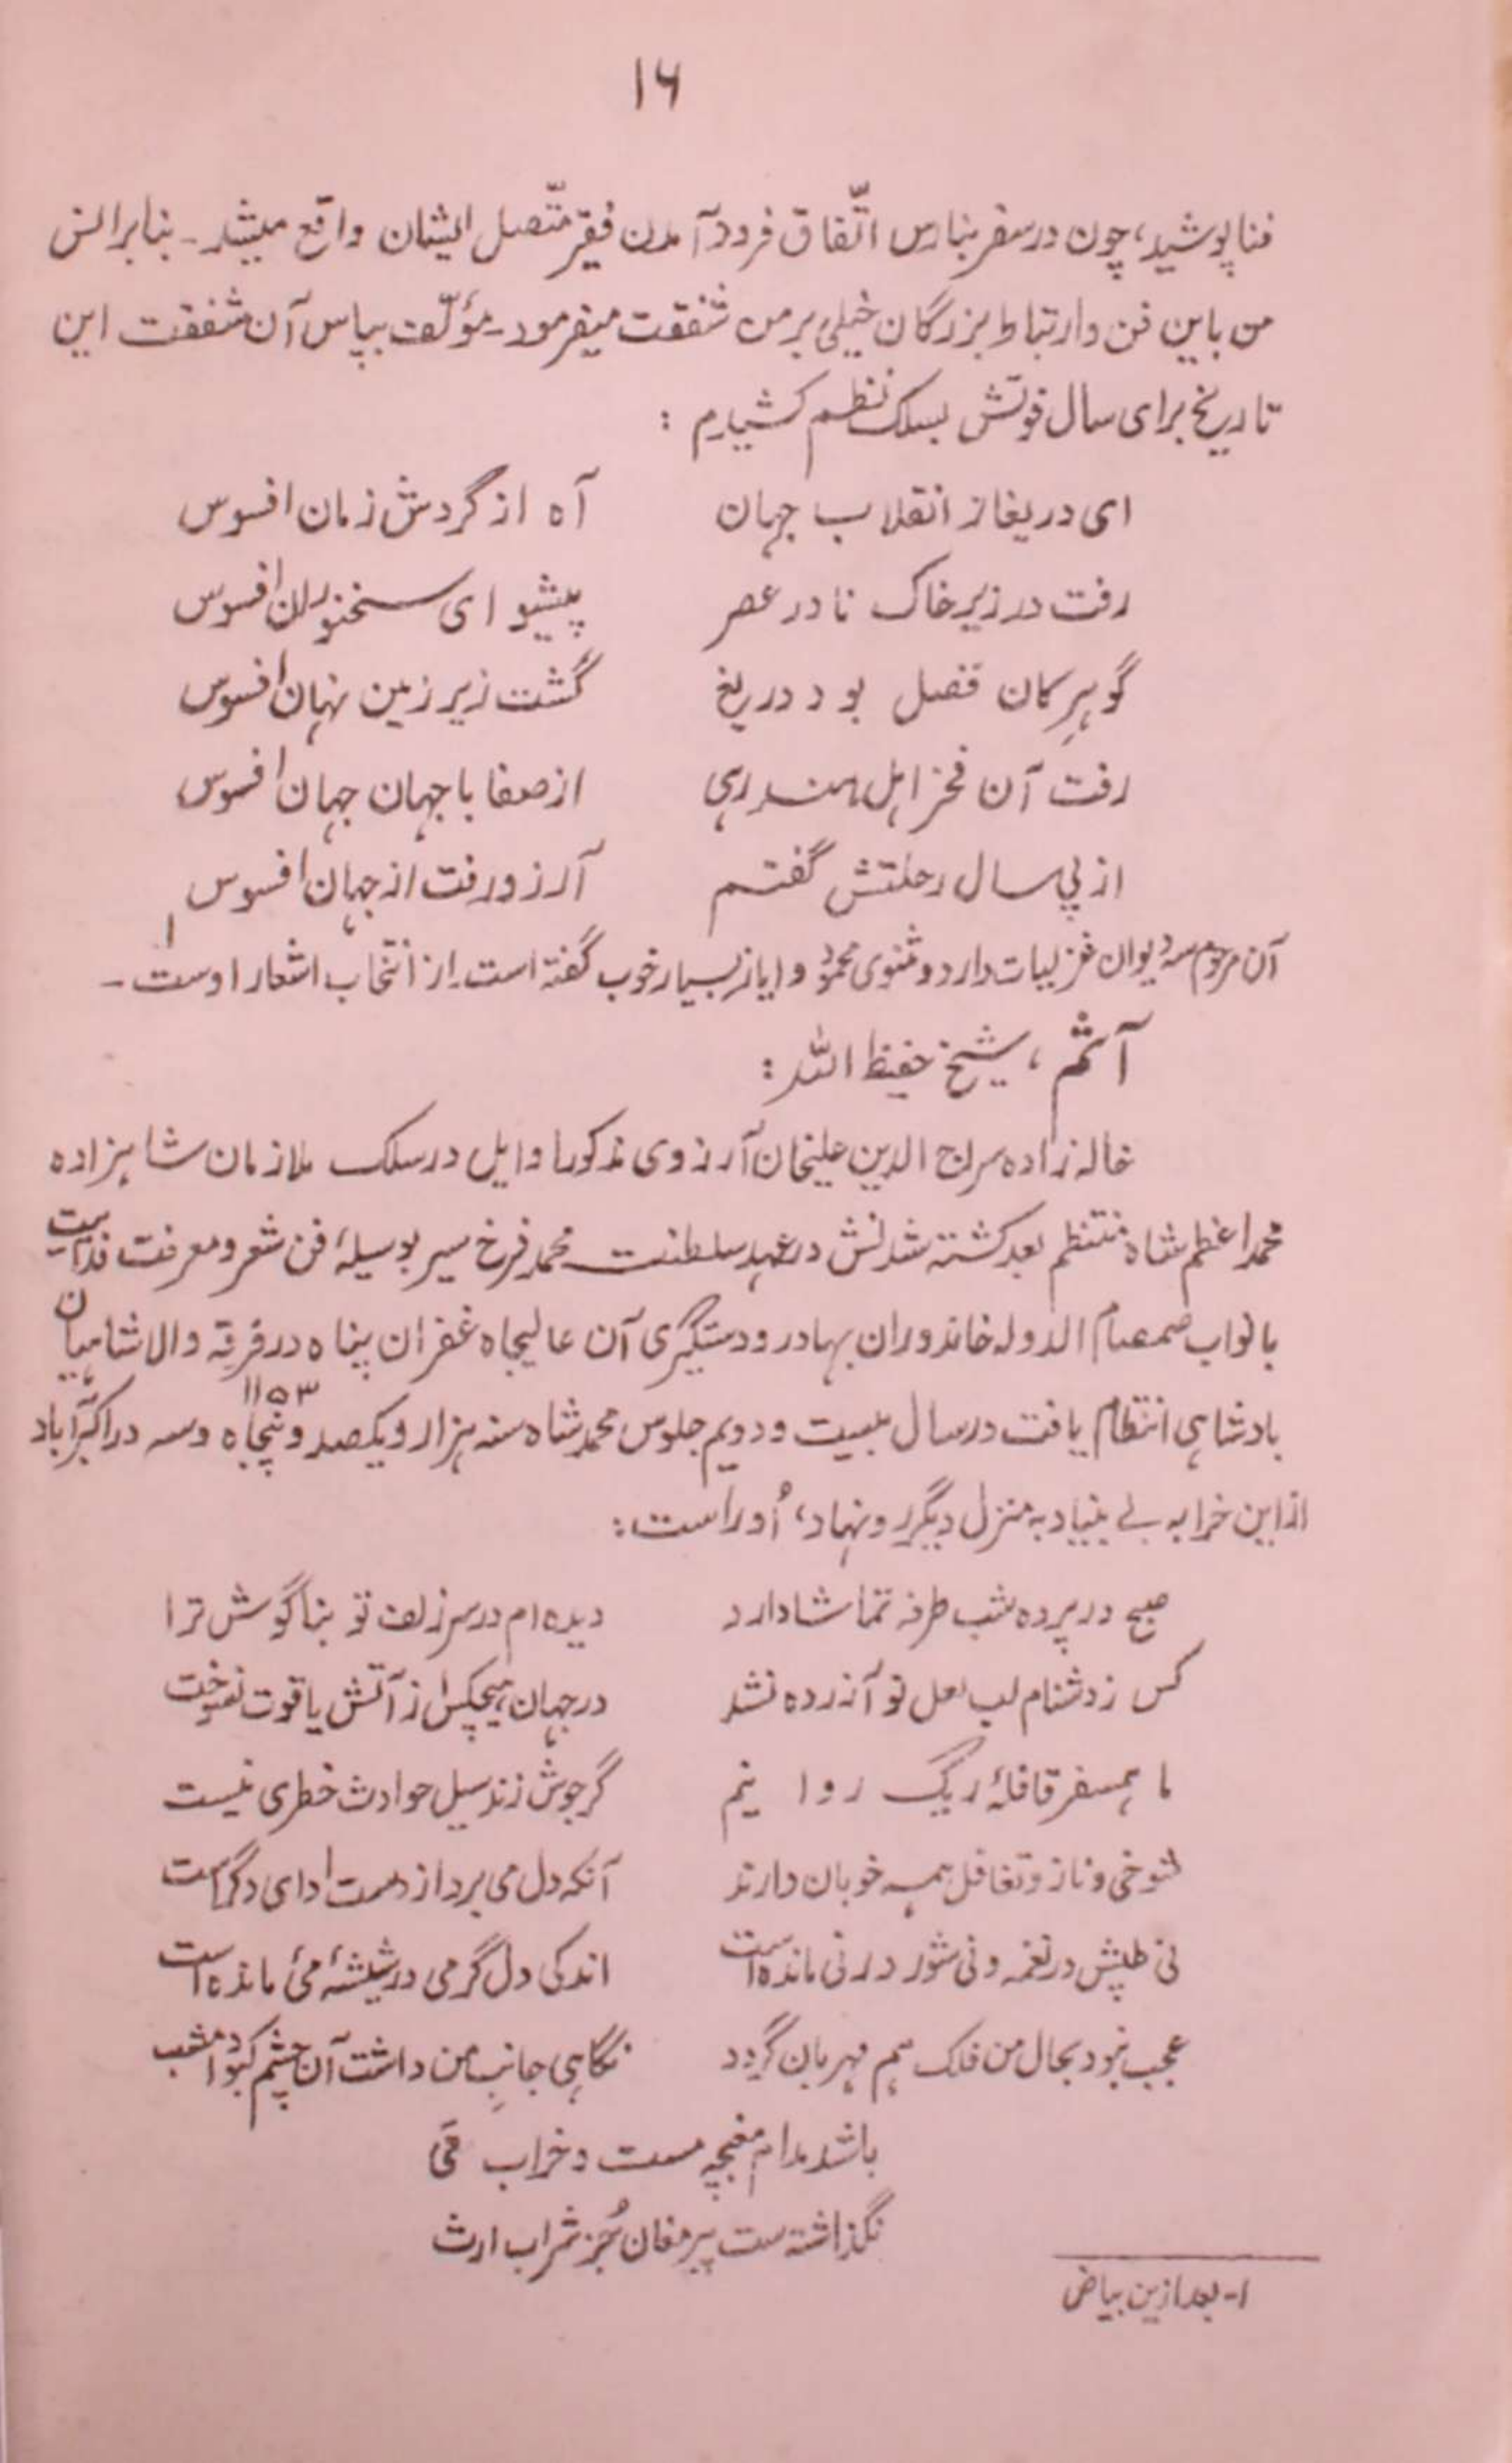 ۱۶
فنا پوشید، چون در سفر بنارس اتّفاق فرود آمدن فقیر متّصل ایشان واقع میشد ـ بنابر انس
من باین فن و ارتباط بزرگان خیلی بر من شفقت میفرمود ـ مؤلّف بپاس آن شفقت این
تاریخ برای سال فوتش بسلک نظم کشیدم :
ای دریغا ز انقلاب جهان آه از گردش زمان افسوس
رفت در زیر خاک نادر عصر پیشوای سخنوران افسوس
گوهرِ کان فضل بود دریغ گشت زیر زمین نهان افسوس
رفت آن فخر اهل هند رہی از صفا با جهان جهان افسوس
از پی سال رحلتش گفتم آرزو رفت از جهان افسوس
آن مرحوم سه دیوان غزلیات دارد و مثنوی محمود و ایاز بسیار خوب گفته است. از انتخاب اشعار اوست ـ ۱
آثم ، شیخ حفیظ اللّه :
خاله زاده سراج الدین علیخان آرزوی مذکور اوایل در سلک ملازمان شاهزاده
محمد اعظم شاه منتظم بعد کشته شدنش در عهد سلطنت محمد فرخ سیر بوسیلهٔ فن شعر و معرفت
با نواب صمصام الدوله خاندوران بهادر و دستگیری آن عالیجاه غفران پناه در فرقه والا شاهیان
بادشاهی انتظام یافت در سال بیست و دویم جلوس محمد شاه سنه هزار و یکصد و پنجاه و سه ۱۱۵۳ در اکبرآباد
از این خرابه بے بنیاد به منزل دیگر رو نهاد، اُو راست :
صبح در پرده شب طرفه تماشا دارد دیده ام در سر زلف تو بناگوش ترا
کس ز دشنام لب لعل تو آزرده نشد در جهان هیچکس از آتش یاقوت نسوخت
ما همسفر قافلهٔ ریگ روانیم گر جوش زند سیل حوادث خطری نیست
شوخی و ناز و تغافل همه خوبان دارند آنکه دل می برد از دست ادای دگر است
نی طپش در نغمه و نی شور در نی مانده است اندکی دل گرمی در شیشهٔ مئ مانده است
عجب نبود بحال من فلک هم مهربان گردد نگاهی جانبِ من داشت آن چشم کبود امشب
باشد مدام مغبچه مست و خراب مَی
نگذاشته ست پیر مغان جُز شراب ارث
۱- بعد ازین بیاض